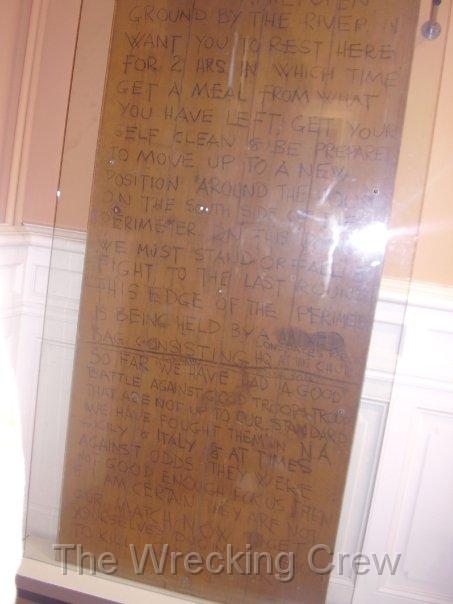 GROUND BY THE RIVER IN
WANT YOU TO REST HERE
FOR 2 HRS IN WHICH TIME
GET A MEAL FROM WHAT
YOU HAVE LEFT, GET YOUR
SELF CLEAN & BE PREPARED
TO MOVE UP TO A NEW
POSITION AROUND THE
ON THE SOUTH SIDE OF
PERIMETER IN THIS
WE MUST STAND OR FALL &
FIGHT TO THE LAST ROUND
THIS EDGE OF THE PERIMETER
IS BEING HELD BY A
CONSISTING HQ AT THIS
SO FAR WE HAVE HAD A GOOD
BATTLE AGAINST GOOD TROOPS TROOPS
THAT ARE NOT UP TO OUR STANDARD
WE HAVE FOUGHT THEM IN N.A
& ITALY & AT TIMES
AGAINST ODDS THEY WERE
NOT GOOD ENOUGH FOR US THEN
AM CERTAIN THEY ARE NOT
OUR MATCH NOW
YOURSELVES
TO KILL
The Wrecking Crew